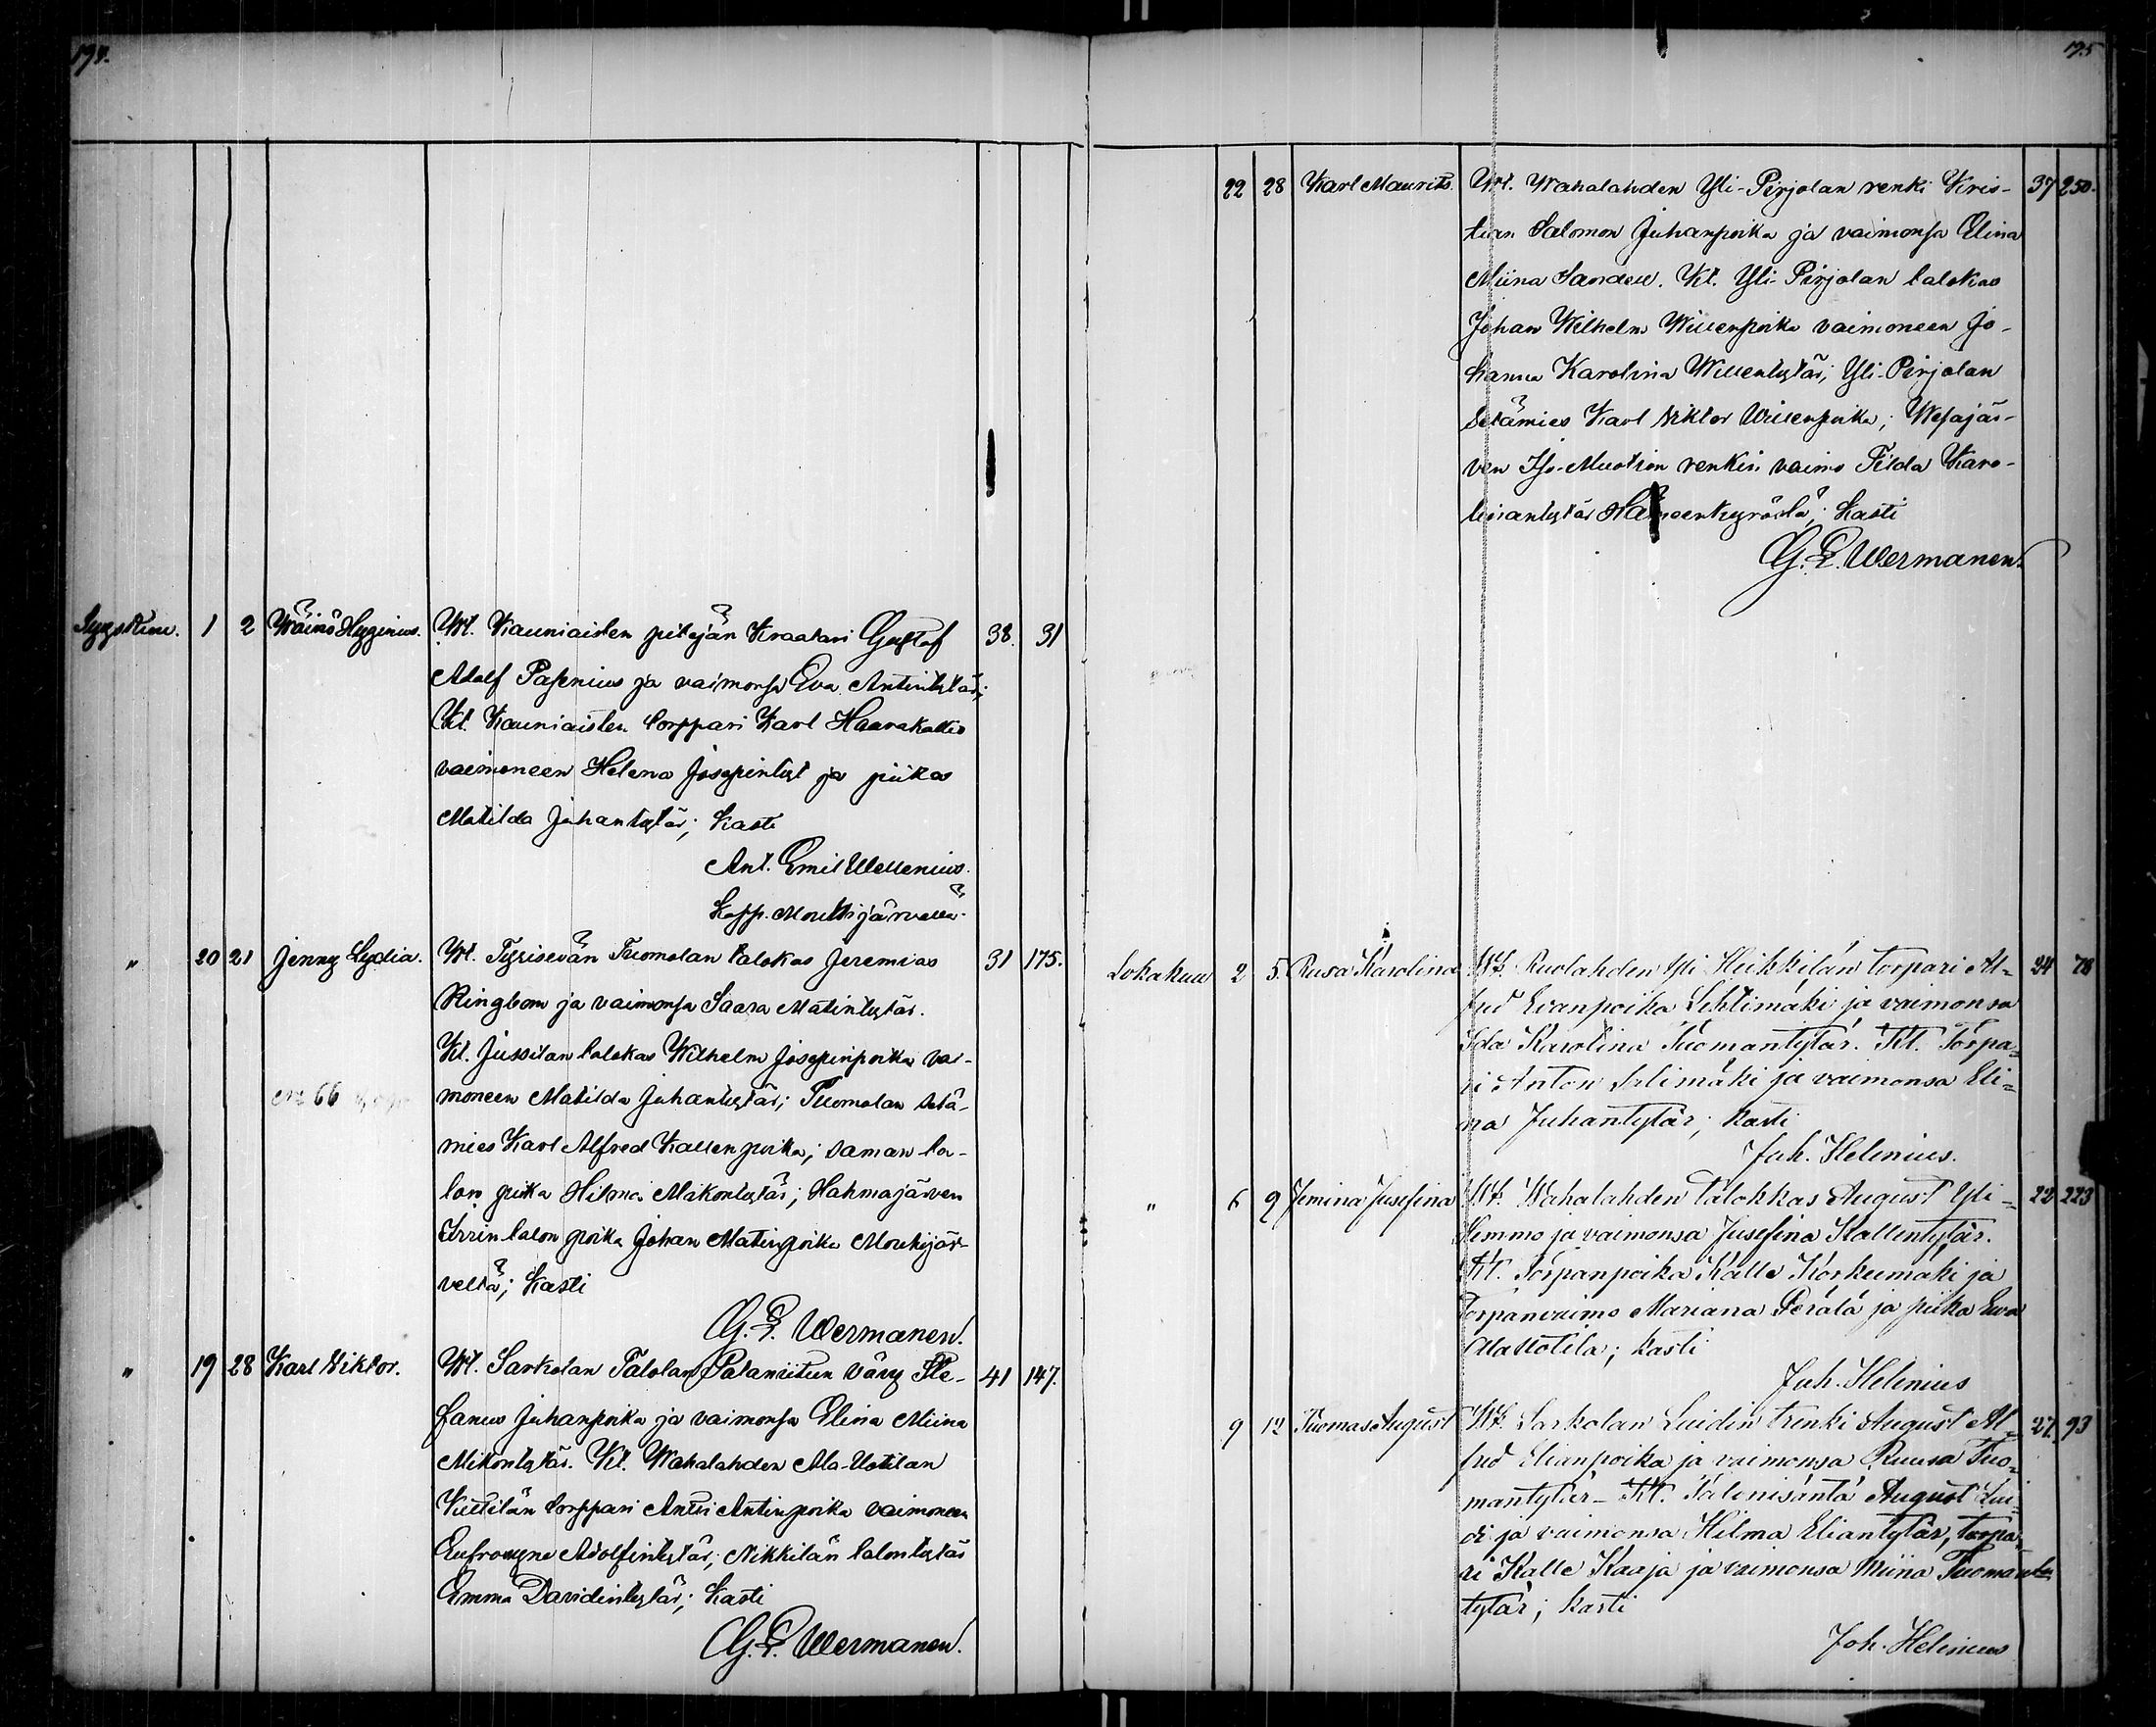 194.
Syyskuu. 1 2 Wäinö Hyginus. Wt. Kauniaisten pitäjän Kraatari Gustaf 38. 31
Adolf Pasenius ja vaimonsa Eva Antintytär;
Kt. Kauniaisten torppari Karl Haarakallio
vaimoneen Helena Josepintyt ja piika
Matilda Juhantytär; Kasti
Ant. Emil Wellenius.
Kapp. Mouhijärvellä.
" 20 21 Jenny Lydia. Wt. Tyrisevän Tuomolan talokas Jeremias 31 175.
Ringbom ja vaimonsa Saara Matintytär.
Kt. Jussilan talokas Wilhelm Josepinpoika vai-
66 moneen Matilda Juhantytär; Tuomolan setä-
mies Karl Alfred Kallenpoika; saman ta-
lon piika Hilma Mikontytär; Hahmajärven
talon poika Johan Matinpoika Mouhijär-
veltä; Kasti
G. E. Wermanen.
" 19 28 Karl Viktor. Wt. Sarkolan Talolan Palaniitun Vävy Ste- 41 147.
fanus Juhanpoika ja vaimonsa Elina Miina
Mikontytär. Kt. Wahalahden Ala-Uotilan
Kiettilän torppari Antti Antinpoika vaimoneen
Eufrosyne Adolfintytär; Nikkilän talontytär
Emma Davidintytär; Kasti
G. E. Wermanen.
195
22 28 Karl Maurits. Wt. Wahalahden Yli-Pirjolan renki Kris- 37 250.
tian Salomon Juhanpoika ja vaimonsa Elina
Miina Sandell. Kt. Yli-Pirjolan talokas
Johan Wilhelm Willenpoika vaimoneen Jo-
hanna Karolina Willentytär; Yli-Pirjolan
Setämies Karl Viktor Willenpoika; Wesajär-
ven Iso-Muotion renkin vaimo Tilda Karo-
liinantytär Hämeenkyröstä; Kasti
G. E. Wermanen.
Lokakuu 2 5. Rusa Karolina Wt. Ruolahden Yli Heikkilän torpari Al- 24 78
fred Evanpoika Lehtimäki ja vaimonsa
Ida Karolina Tuomantytär. Kt. Torpa-
ri Anton Salimäki ja vaimonsa Eli-
na Juhantytär; kasti
Joh. Helenius.
" 6 9 Jemina Jusefina Wt. Wahalahden talokkas August Yli- 22 223
Hemmo ja vaimonsa Jusefina Kallentytär.
Kt. Torpanpoika Kalle Korkeemäki ja
torpanvaimo Mariana Perälä ja piika Ewa
Ala Uotila; kasti
Joh. Helenius
9 12 Tuomas August Wt. Sarkolan Luidin trenki August Al- 27. 93
fred Elianpoika ja vaimonsa Ruusa Tuo-
mantytär - Kt. Talonisäntä August Lui-
di ja vaimonsa Hilma Eliantytär, torpa-
ri Kalle Kaaja ja vaimonsa Miina Tuoman-
tytär; kasti
Joh. Helenius